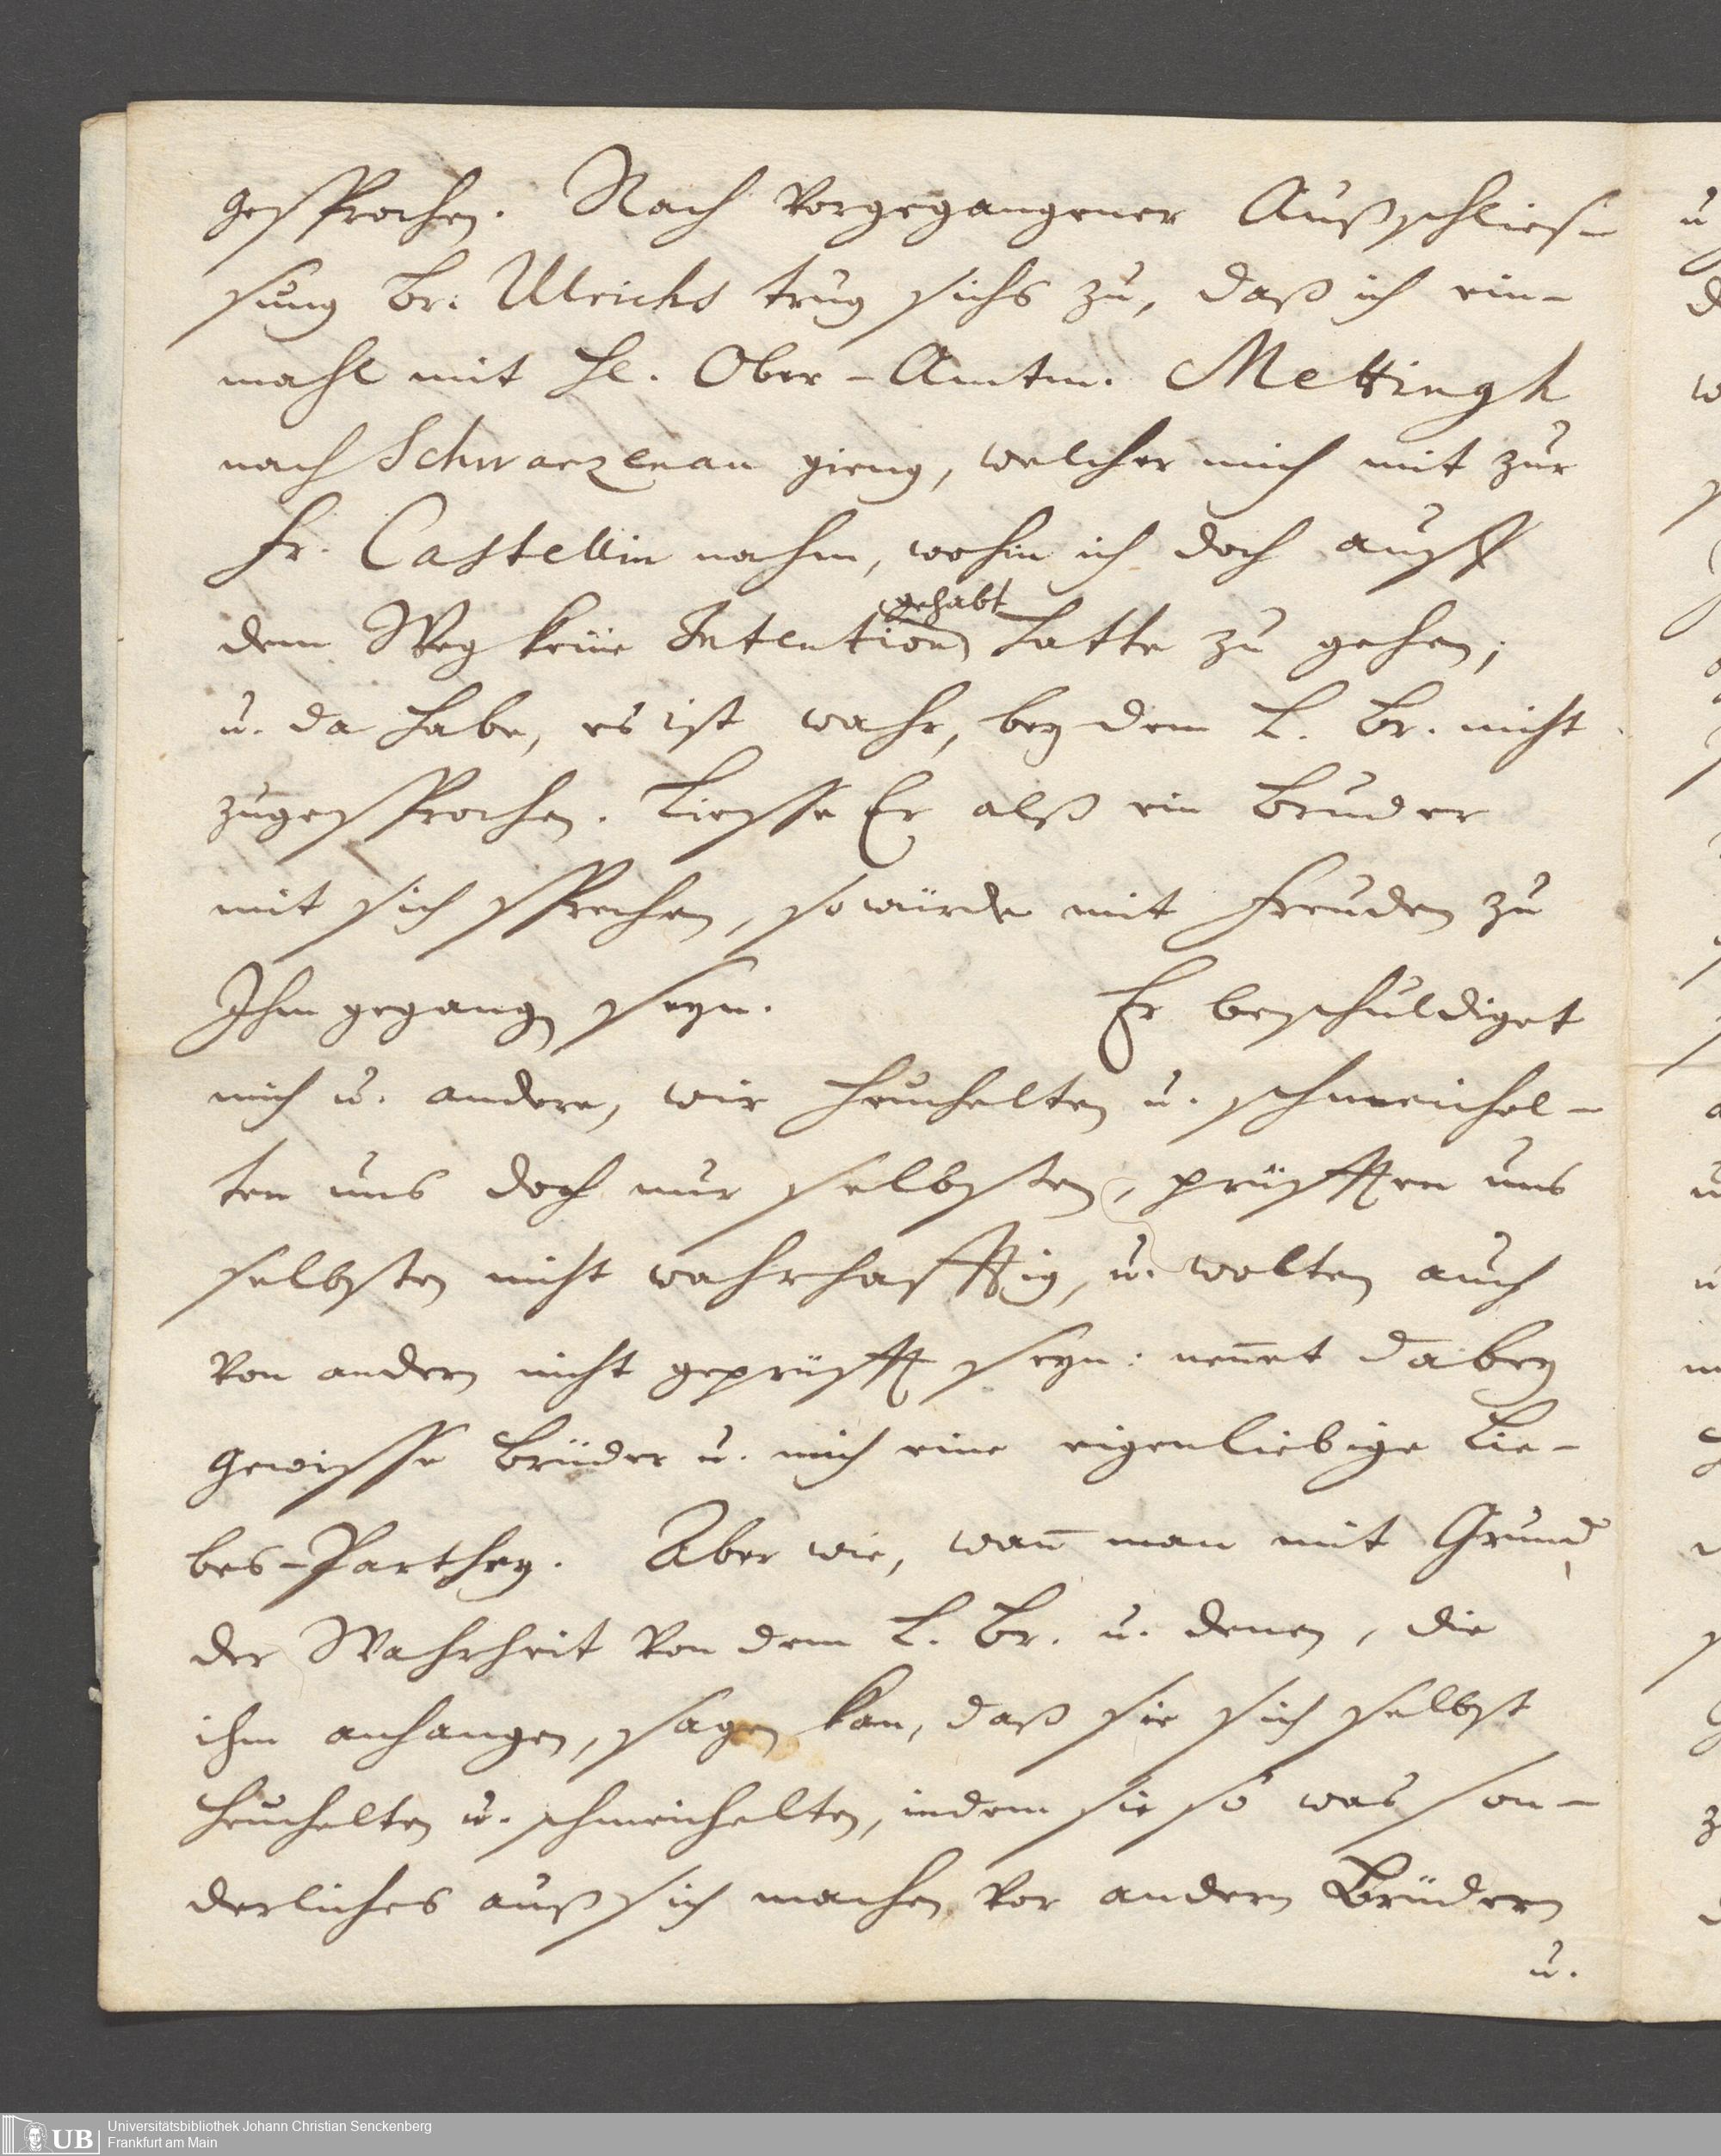 gesprochen. Nach vorgegangener Außschlies-
sung Br: Ulrichs trug sichs zu, daß ich ein-
mahl mit H. Ober-Amtm. Mettingh
nach Schwarzenau gieng, welcher mich mit zur
Fr. Castellin nahm, wohin ich doch auff
gehabt
dem Weg keine Intention hatte zu gehen;
u. da habe, es ist wahr, bey dem L. Br. nicht
zugesprochen. Liesse Er alß ein Bruder
mit sich sprechen, so würde mit Freuden zu
Ihm gegangen seyn. Er beschuldiget
mich u. andere, wir heuchelten u. schmeichel-
ten uns doch nur selbsten, prüfften uns
selbsten nicht wahrhafftig, u. wolten auch
von andern nicht geprüfft seyn: nen̄et dabey
gewisse Brüder u. mich eine eigenliebige Lie-
bes-Parthey. Aber wie, wan̄ man mit Grund
der Wahrheit von dem L. Br. u. denen, die
ihm anhangen, sagen kan, daß sie sich selbst
heuchelten u. schmeichelten, indem sie so was son-
derliches auß sich machen vor andern Brüdern
u.
UB Universitätsbibliothek Johann Christian Senckenberg
Frankfurt am Main